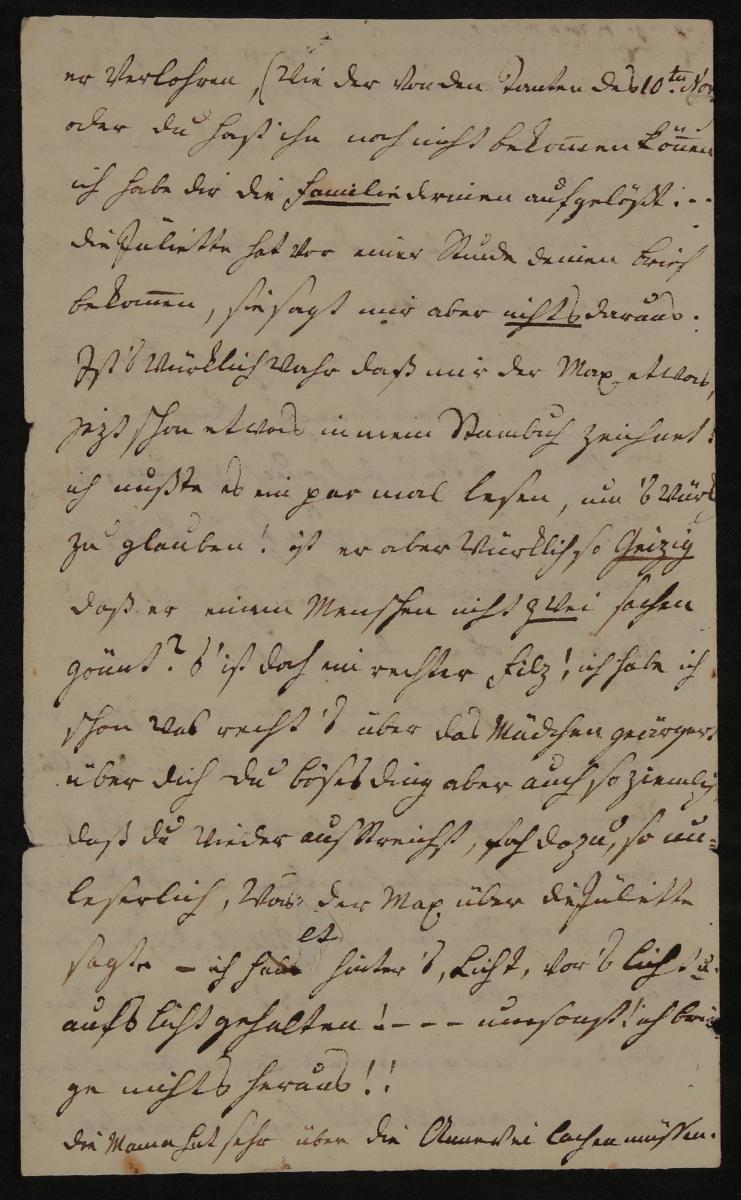 er Verlohren, (Wie der von den Tanten des 10ten Nov
oder du hast ihn noch nicht bekommen können
ich habe dir die Familie drinen aufgelößt:..
die Juliette hat vor einer Stunde deinen brief
bekommen, sie sagt mir aber nichts daraus.
Ist's Würklich Wahr daß mir der Max etwas,
jezt schon etwas in mein Stambuch zeichnet!
ich mußte es ein par mal lesen, um 's Würk
zu glauben! ist er aber Würklich so Geizig
daß er einem Menschen nicht zwei sachen
gönnt? 's' ist doch ein rechter Filz! ich habe ich
schon Was recht's über das Mädchen geärgert
über dich du böses ding aber auch so ziemlich
daß du Wieder ausstreichst, noch dazu, so un=
leserlich, Was der Max über die Juliette
sagte – ich hab et hinter's, Licht, vor's licht u.
aufs licht gehalten! - - - umsonst! ich brin
ge nichts heraus!!
die Mama hat sehr über die Annerei lachen müssen.